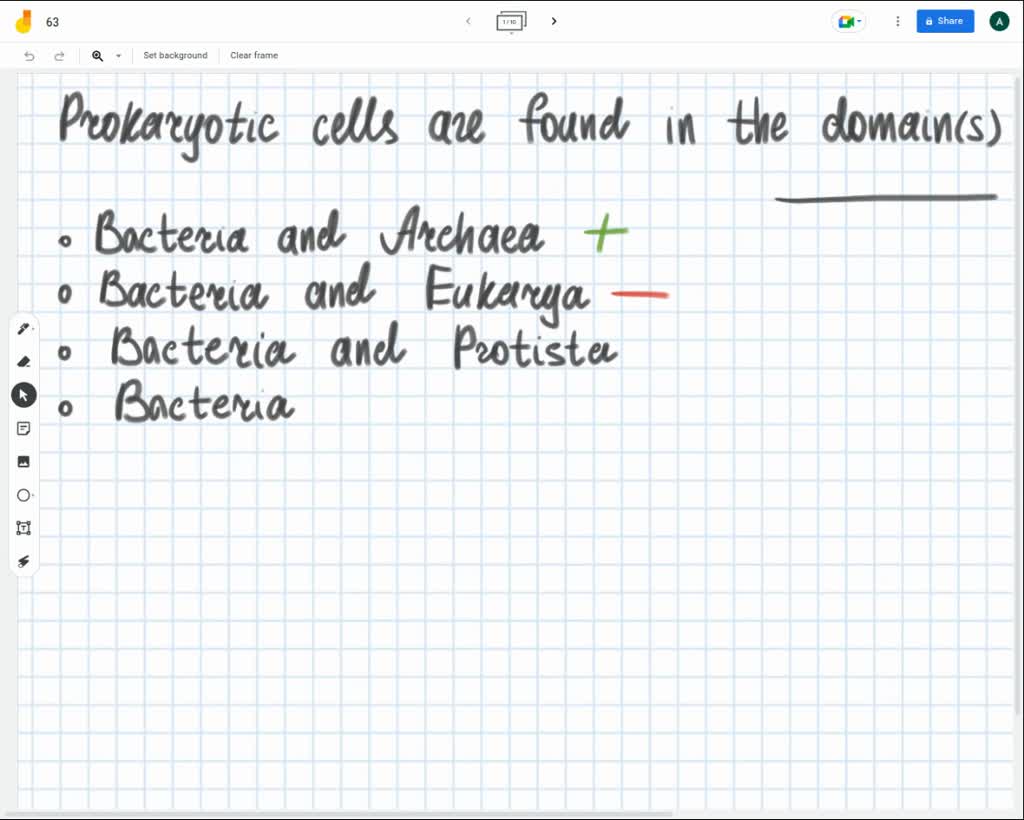 63
1/10
Share
A
Set background
Clear frame
Prokaryotic cells are found in the domain(s)
Bacteria and Archaea +
Bacteria and Eukarya —
Bacteria and Protista
Bacteria